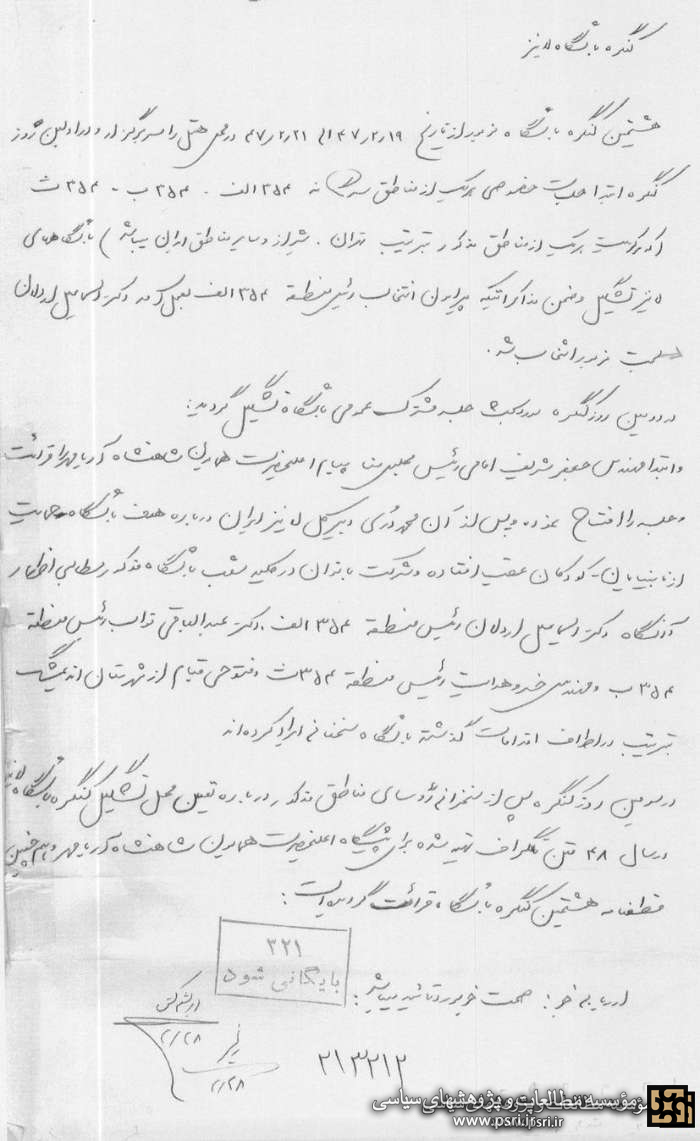 کنگره باشگاه لاینز
هشتمین کنگره باشگاه مزبور از تاریخ ۴۷٫۲٫۱۹ الی ۴۷٫۲٫۲۱ در محل هتل رامسر برگزار و در اولین روز
کنگره ابتدا جلسات خصوصی هریک از مناطق سه‌گانه ۳۵۴ الف - ۳۵۴ ب - ۳۵۴ ث
(که مرکزیت هریک از مناطق مذکور بترتیب تهران، شیراز و سایر مناطق ایران میباشد) باشگاههای
لاینز تشکیل و ضمن مذاکراتیکه پیرامون انتخاب رئیس منطقه ۳۵۴ الف بعمل آمد دکتر اسماعیل اردلان
بسمت مزبور انتخاب شد.
در دومین روز کنگره جلسه مشترک عمومی باشگاه تشکیل گردید:
و ابتدا مهندس جعفر شریف امامی رئیس مجلس سنا پیام اعلیحضرت همایون شاهنشاه آریامهر را قرائت
و جلسه را افتتاح نموده و پس از آن محمد دبیر کل لاینز ایران درباره هدف باشگاه و حمایت
از نابینایان - کودکان عقب افتاده و شرکت بانوان در کلیه شعب باشگاه مذکور مطالبی اظهار
آنگاه دکتر اسماعیل اردلان رئیس منطقه ۳۵۴ الف، دکتر عبدالباقی نواب رئیس منطقه
۳۵۴ ب و مهندس خسرو هدایت رئیس منطقه ۳۵۴ ث و فتوحی قیام از شهرستان اندیمشک
بترتیب در اطراف اقدامات گذشته باشگاه سخنانی ایراد کرده‌اند
در سومین روز کنگره پس از سخنرانی رؤسای مناطق مذکور درباره تعیین محل تشکیل کنگره باشگاه لاینز
در سال ۴۸ متن تلگراف تهیه شده برای پیشگاه اعلیحضرت همایون شاهنشاه آریامهر و همچنین
قطعنامه هشتمین کنگره باشگاه قرائت گردیده است:
۳۲۱
بایگانی شود
ارزیابی خبر: صحت خبر مورد تائید میباشد:
۲/۲۸
۲/۲۸
۲۱۳۲۱۲
مؤسسه مطالعات و پژوهشهای سیاسی
www.psri.ir